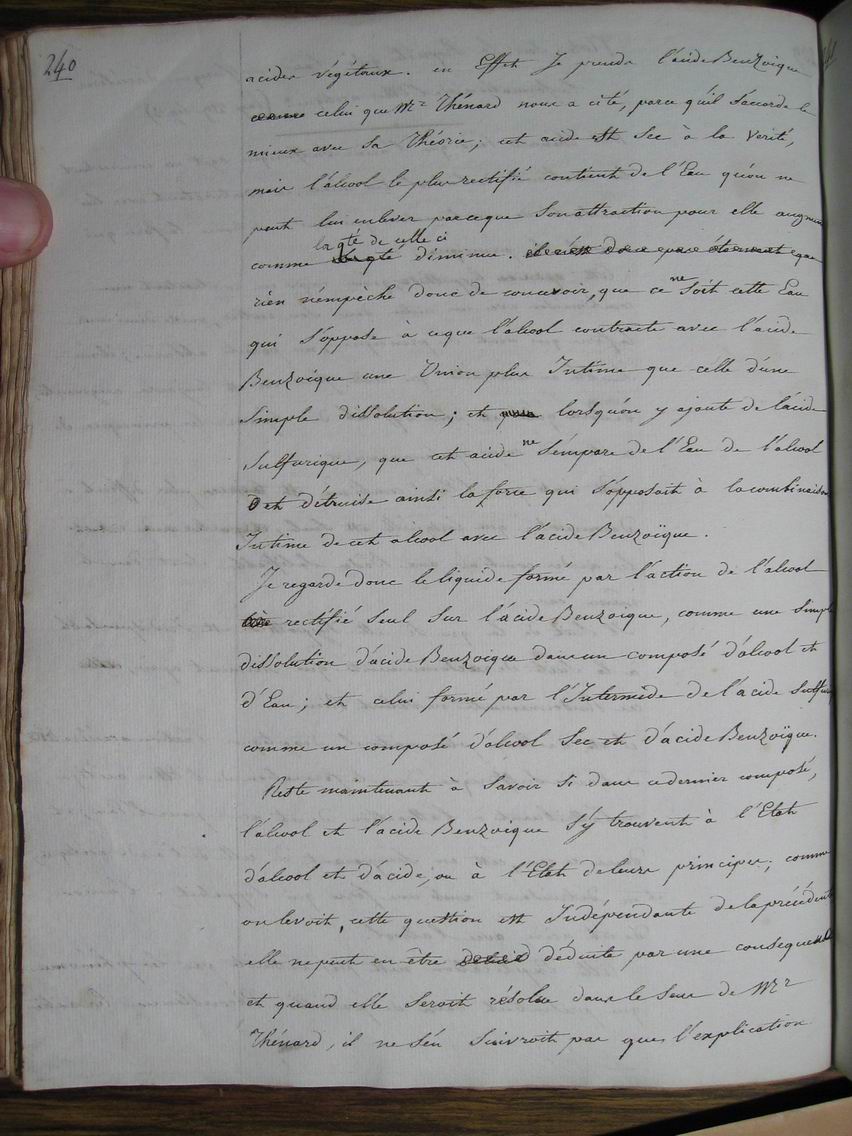 240
acides végétaux. en Effet Je prends l'acide Benzoique
celui que Mr Thénard nous a cité, parce qu'il s'accorde le
mieux avec sa Théorie; cet acide est sec à la verité,
mais l'alcool le plus rectifié contient de l'Eau qu'on ne
peut lui enlever parceque son attraction pour elle augmente
la qté de celle ci
comme diminue. il n'est donc pas étonnant que
rien n'empèche donc de concevoir, que ce ne soit cette Eau
qui s'oppose à ceque l'alcool contracte avec l'acide
Benzoique une Union plus Intime que celle d'une
simple dissolution; et lorsqu'on y ajoute de l'acide
sulfurique, que cet acide ne s'empare de l'Eau de l'alcool
et détruise ainsi la force qui s'opposait à la combinaison
Intime de cet alcool avec l'acide Benzoïque.
Je regarde donc le liquide formé par l'action de l'alcool
rectifié seul sur l'acide Benzoique, comme une simple
dissolution d'acide Benzoique dans un composé d'alcool et
d'Eau; et celui formé par l'Intermède de l'acide sulfurique
comme un composé d'alcool sec et d'acide Benzoïque.
Reste maintenant à savoir si dans ce dernier composé,
l'alcool et l'acide Benzoique s'y trouvent à l'Etat
d'alcool et d'acide, ou à l'Etat de leurs principes; comme
on le voit, cette question est Indépendante de la précédente
elle ne peut en être déduite par une consequence
et quand elle seroit résolue dans le sens de Mr
Thénard, il ne s'en suivroit pas que l'explication